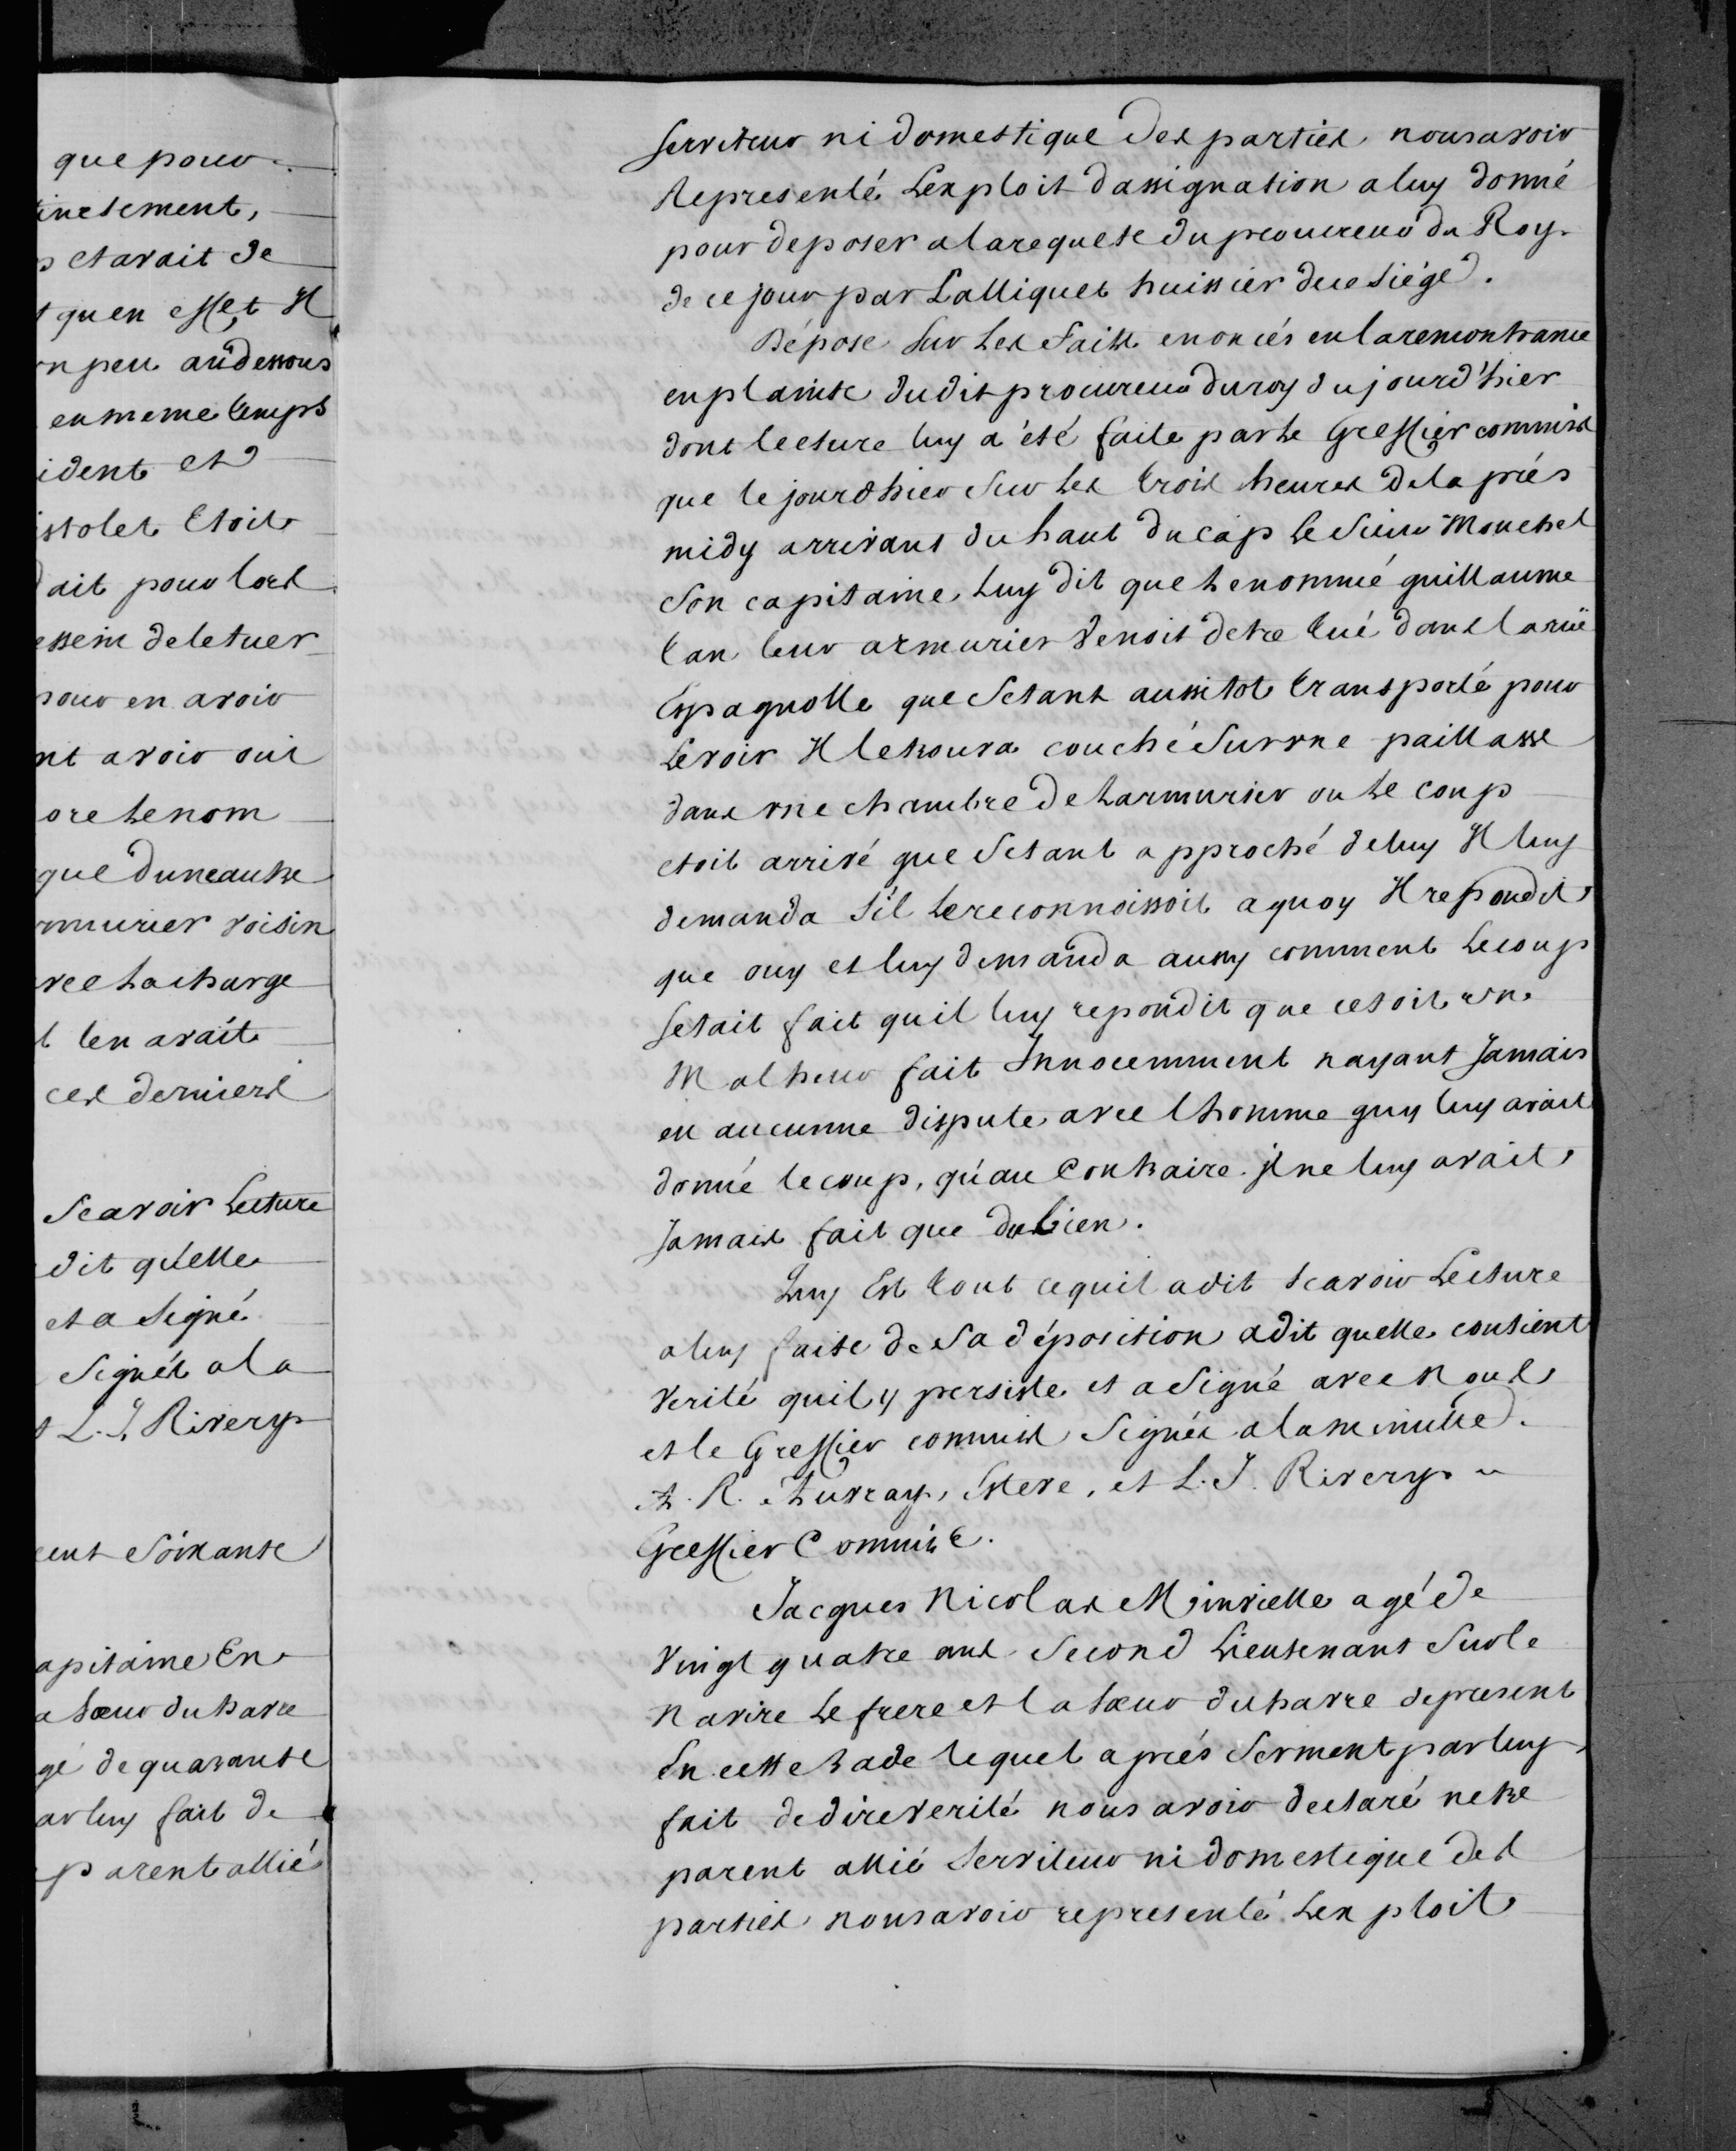 que pour
inctement,
etavait de
t quen effet Il
n peu audessous
en meme temps
ident et
istolet Etoit
ait pour lors
essein deletuer
pour en avoir
nt avoir oui
ore le nom
que duneautre
rmurier voisin
vec la charge
l len avait
ces derniers
Scavoir Lecture
dit qu'elle
et a Signé
Signés ala
L. J. Rivery
cent Soixante
apitaine En
a Soeur du havre
gé de quarante
ar luy fait de
parent allié
Serviteur ni domestique des parties nousavoir
Representé Lexploit dassignation a luy donné
pour deposer alarequete du procureur du Roy
de ce jour par Lalliquet huissier dece siége.
Dépose sur Les Faits enoncés en laremontrance
en plainte dudit procureur duroy du jourd'hier
dont lecture luy a été faite par Le Greffier commis
que le jourdhier sur Les trois heures delaprés
midy arrivant du haut du cap Le Sieur Mouchel
Son capitaine Luy dit que Le nommé guillaume
tan leur armurier Venoit detre tué dans la rüe
Espagnolle que Setant aussitot transporté pour
Levoir Il letrouva couché Surune paillasse
dans une chambre de Larmurier ou Le coup
etoit arrivé que Setant approché deluy Il luy
demanda S'il Lereconnoissoit aquoy Il repondit
que ouy et luy demanda aussy comment Lecoup
Setait fait quil luy repondit que cetoit un
Malheur fait Innocemment nayant Jamais
eu aucunne dispute avec lhomme quy luy avait
donné le coup, qu'au Contraire il ne luy avait
Jamais fait que dubien.
Quy Est tout cequil adit scavoir Lecture
aluy faite de Sa déposition adit quelle contient
Verité quil y persiste et a Signé avec Nous
et le Greffier commis Signés alaminutte.
A. R. Auvray, Esteve, et L. J. Rivery
Greffier Commis.
Jacques Nicolas Minvielle agé de
Vingt quatre ans Second Lieutenant Sur le
Navire Le frere et la Soeur duhavre depresent
En cette Rade lequel aprés Serment par luy
fait dedireverité nous avoir declaré netre
parent allié Serviteur ni domestique des
parties nousavoir representé Lexploit